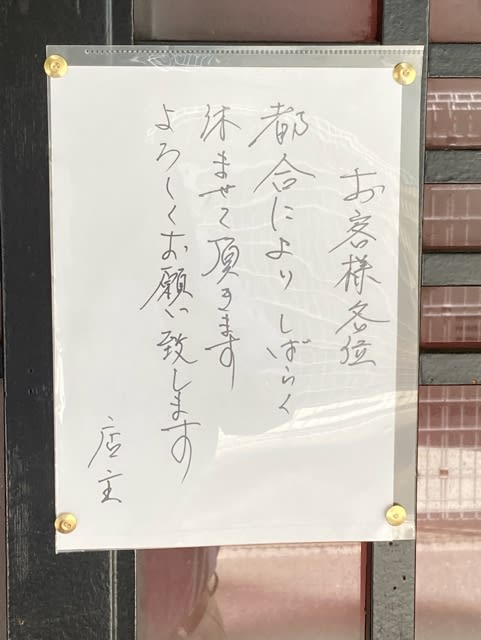 お客様各位
都合によりしばらく
休ませて頂きます
よろしくお願い致します
店主